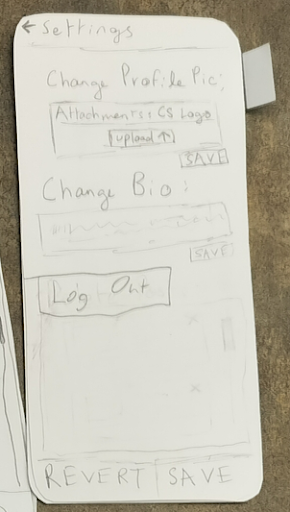 ← Settings
Change Profile Pic:
Attachments: CS Logo
upload ↑
SAVE
Change Bio:
SAVE
Log Out
REVERT SAVE